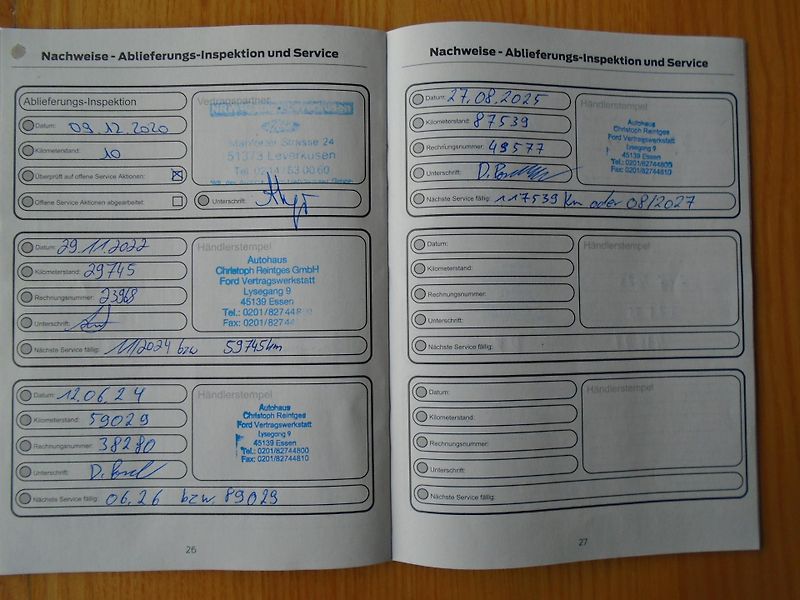 Nachweise - Ablieferungs-Inspektion und Service
Ablieferungs-Inspektion
Datum: 09.12.2020
Kilometerstand: 10
Überprüft auf offene Service Aktionen:
Offene Service Aktionen abgearbeitet:
Vertragspartner
Strasse 24
51373 Leverkusen
Unterschrift:
Datum: 29.11.2022
Kilometerstand: 29745
Rechnungsnummer: 23968
Unterschrift:
Nächste Service fällig: 11/2024 bzw 59745km
Händlerstempel
Autohaus
Christoph Reintges GmbH
Ford Vertragswerkstatt
Lysegang 9
45139 Essen
Tel.: 0201/82744
Fax: 0201/82744
Datum: 12.06.24
Kilometerstand: 59029
Rechnungsnummer: 38280
Unterschrift:
Nächste Service fällig: 06.26 bzw. 89029
Händlerstempel
Autohaus
Christoph Reintges
Ford Vertragswerkstatt
Lysegang 9
45139 Essen
Tel.: 0201/82744800
Fax: 0201/82744810
26
Nachweise - Ablieferungs-Inspektion und Service
Datum: 27.08.2025
Kilometerstand: 87539
Rechnungsnummer: 49577
Unterschrift:
Nächste Service fällig: 117539 km oder 08/2027
Händlerstempel
Autohaus
Christoph Reintges
Ford Vertragswerkstatt
Lysegang 9
45139 Essen
Tel.: 0201/82744800
Fax: 0201/82744810
Datum:
Kilometerstand:
Rechnungsnummer:
Unterschrift:
Nächste Service fällig:
Händlerstempel
Datum:
Kilometerstand:
Rechnungsnummer:
Unterschrift:
Nächste Service fällig:
Händlerstempel
27